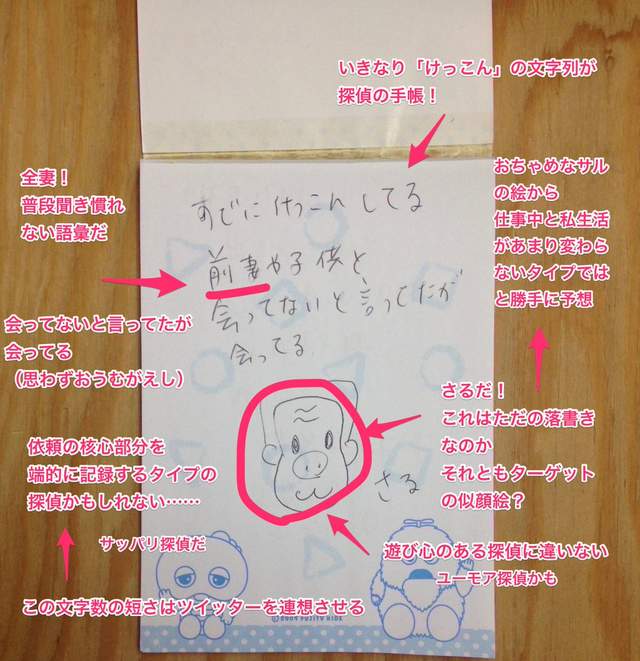 いきなり「けっこん」の文字列が
探偵の手帳！
全妻！
普段聞き慣れ
ない語彙だ
おちゃめなサル
の絵から
仕事中と私生活
があまり変わら
ないタイプでは
と勝手に予想
すでにけっこんしてる
前妻や子供と
会ってないと言ってたが
会ってる
会ってないと言ってたが
会ってる
（思わずおうむがえし）
さるだ！
これはただの落書き
なのか
それともターゲット
の似顔絵？
依頼の核心部分を
端的に記録するタイプの
探偵かもしれない……
さる
サッパリ探偵だ
遊び心のある探偵に違いない
ユーモア探偵かも
この文字数の短さはツイッターを連想させる